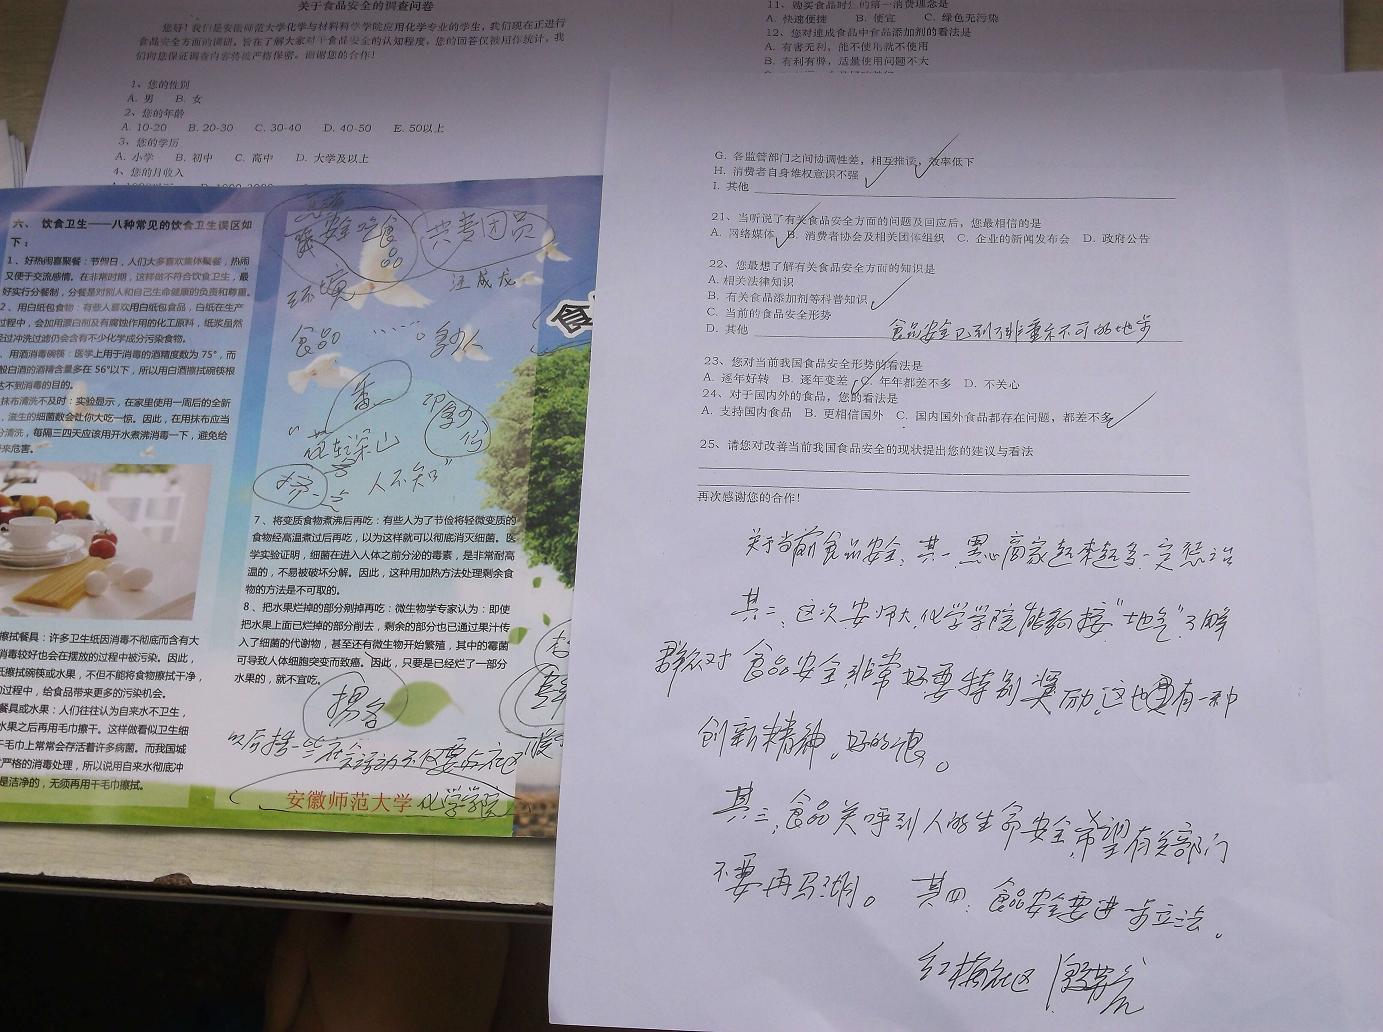 关于食品安全的调查问卷
您好！我们是安徽师范大学化学与材料科学学院应用化学专业的学生，我们现在正进行
食品安全方面的调研，旨在了解大家对于食品安全的认知程度。您的回答仅被用作统计，我
们向您保证调查内容将被严格保密。谢谢您的合作！
1、您的性别
A. 男 B. 女
2、您的年龄
A. 10-20 B. 20-30 C. 30-40 D. 40-50 E. 50以上
3、您的学历
A. 小学 B. 初中 C. 高中 D. 大学及以上
4、您的月收入
11、购买食品时您的第一消费理念是
A. 快速便捷 B. 便宜 C. 绿色无污染
12、您对速成食品中食品添加剂的看法是
A. 有害无利，能不使用就不使用
B. 有利有弊，适量使用问题不大
六、 饮食卫生——八种常见的饮食卫生误区如
下：
1、好热闹喜聚餐：节假日，人们大多喜欢集体聚餐，热闹
又便于交流感情。在非常时期，这样做不符合饮食卫生，最
好实行分餐制，分餐是对别人和自己生命健康的负责和尊重。
2、用白纸包食物：有些人喜欢用白纸包食品，白纸在生产
过程中，会加用漂白剂及有腐蚀作用的化工原料，纸浆虽然
经过冲洗过滤仍会含有不少化学成分污染食物。
、用酒消毒碗筷：医学上用于消毒的酒精度数为 75°，而
般白酒的酒精含量多在 56°以下，所以用白酒擦拭碗筷根
达不到消毒的目的。
抹布清洗不及时：实验显示，在家里使用一周后的全新
，滋生的细菌数会让你大吃一惊。因此，在用抹布应当
分清洗，每隔三四天应该用开水煮沸消毒一下，避免给
带来危害。
擦拭餐具：许多卫生纸因消毒不彻底而含有大
消毒较好也会在摆放的过程中被污染。因此，
纸擦拭碗筷或水果，不但不能将食物擦拭干净，
过程中，给食品带来更多的污染机会。
餐具或水果：人们往往认为自来水不卫生，
水果之后再用毛巾擦干。这样做看似卫生细
干毛巾上常常会存活着许多病菌。而我国城
严格的消毒处理，所以说用自来水彻底冲
是洁净的，无须再用干毛巾擦拭。
安全吃食品
共青团员
环境
汪成龙
食品
多少人
香
"花轻深山
人不知"
7、将变质食物煮沸后再吃：有些人为了节俭将轻微变质的
食物经高温煮过后再吃，以为这样就可以彻底消灭细菌。医
学实验证明，细菌在进入人体之前分泌的毒素，是非常耐高
温的，不易被破坏分解。因此，这种用加热方法处理剩余食
物的方法是不可取的。
8、把水果烂掉的部分剜掉再吃：微生物学专家认为：即使
把水果上面已烂掉的部分削去，剩余的部分也已通过果汁传
入了细菌的代谢物，甚至还有微生物开始繁殖，其中的霉菌
可导致人体细胞突变而致癌。因此，只要是已经烂了一部分
水果的，就不宜吃。
以后搞一些社会活动不仅要在社区
安徽师范大学 化学学院
食
G. 各监管部门之间协调性差，相互推诿，效率低下
H. 消费者自身维权意识不强
I. 其他
21、当听说了有关食品安全方面的问题及回应后，您最相信的是
A. 网络媒体 B. 消费者协会及相关团体组织 C. 企业的新闻发布会 D. 政府公告
22、您最想了解有关食品安全方面的知识是
A. 相关法律知识
B. 有关食品添加剂等科普知识
C. 当前的食品安全形势
D. 其他 食品安全已到了非重示不可的地步
23、您对当前我国食品安全形势的看法是
A. 逐年好转 B. 逐年变差 C. 年年都差不多 D. 不关心
24、对于国内外的食品，您的看法是
A. 支持国内食品 B. 更相信国外 C. 国内国外食品都存在问题，都差不多
25、请您对改善当前我国食品安全的现状提出您的建议与看法
再次感谢您的合作！
关于当前食品安全，其一黑心商家越来越多一定惩治
其二，这次安师大，化学学院能够接"地气"了解
群众对食品安全，非常好要特别奖励，这也具有一种
创新精神，好的很。
其三，食品关呼到人的生命安全，希望有关部门
不要再马糊。 其四，食品安全要进一步立法。
红梅社区